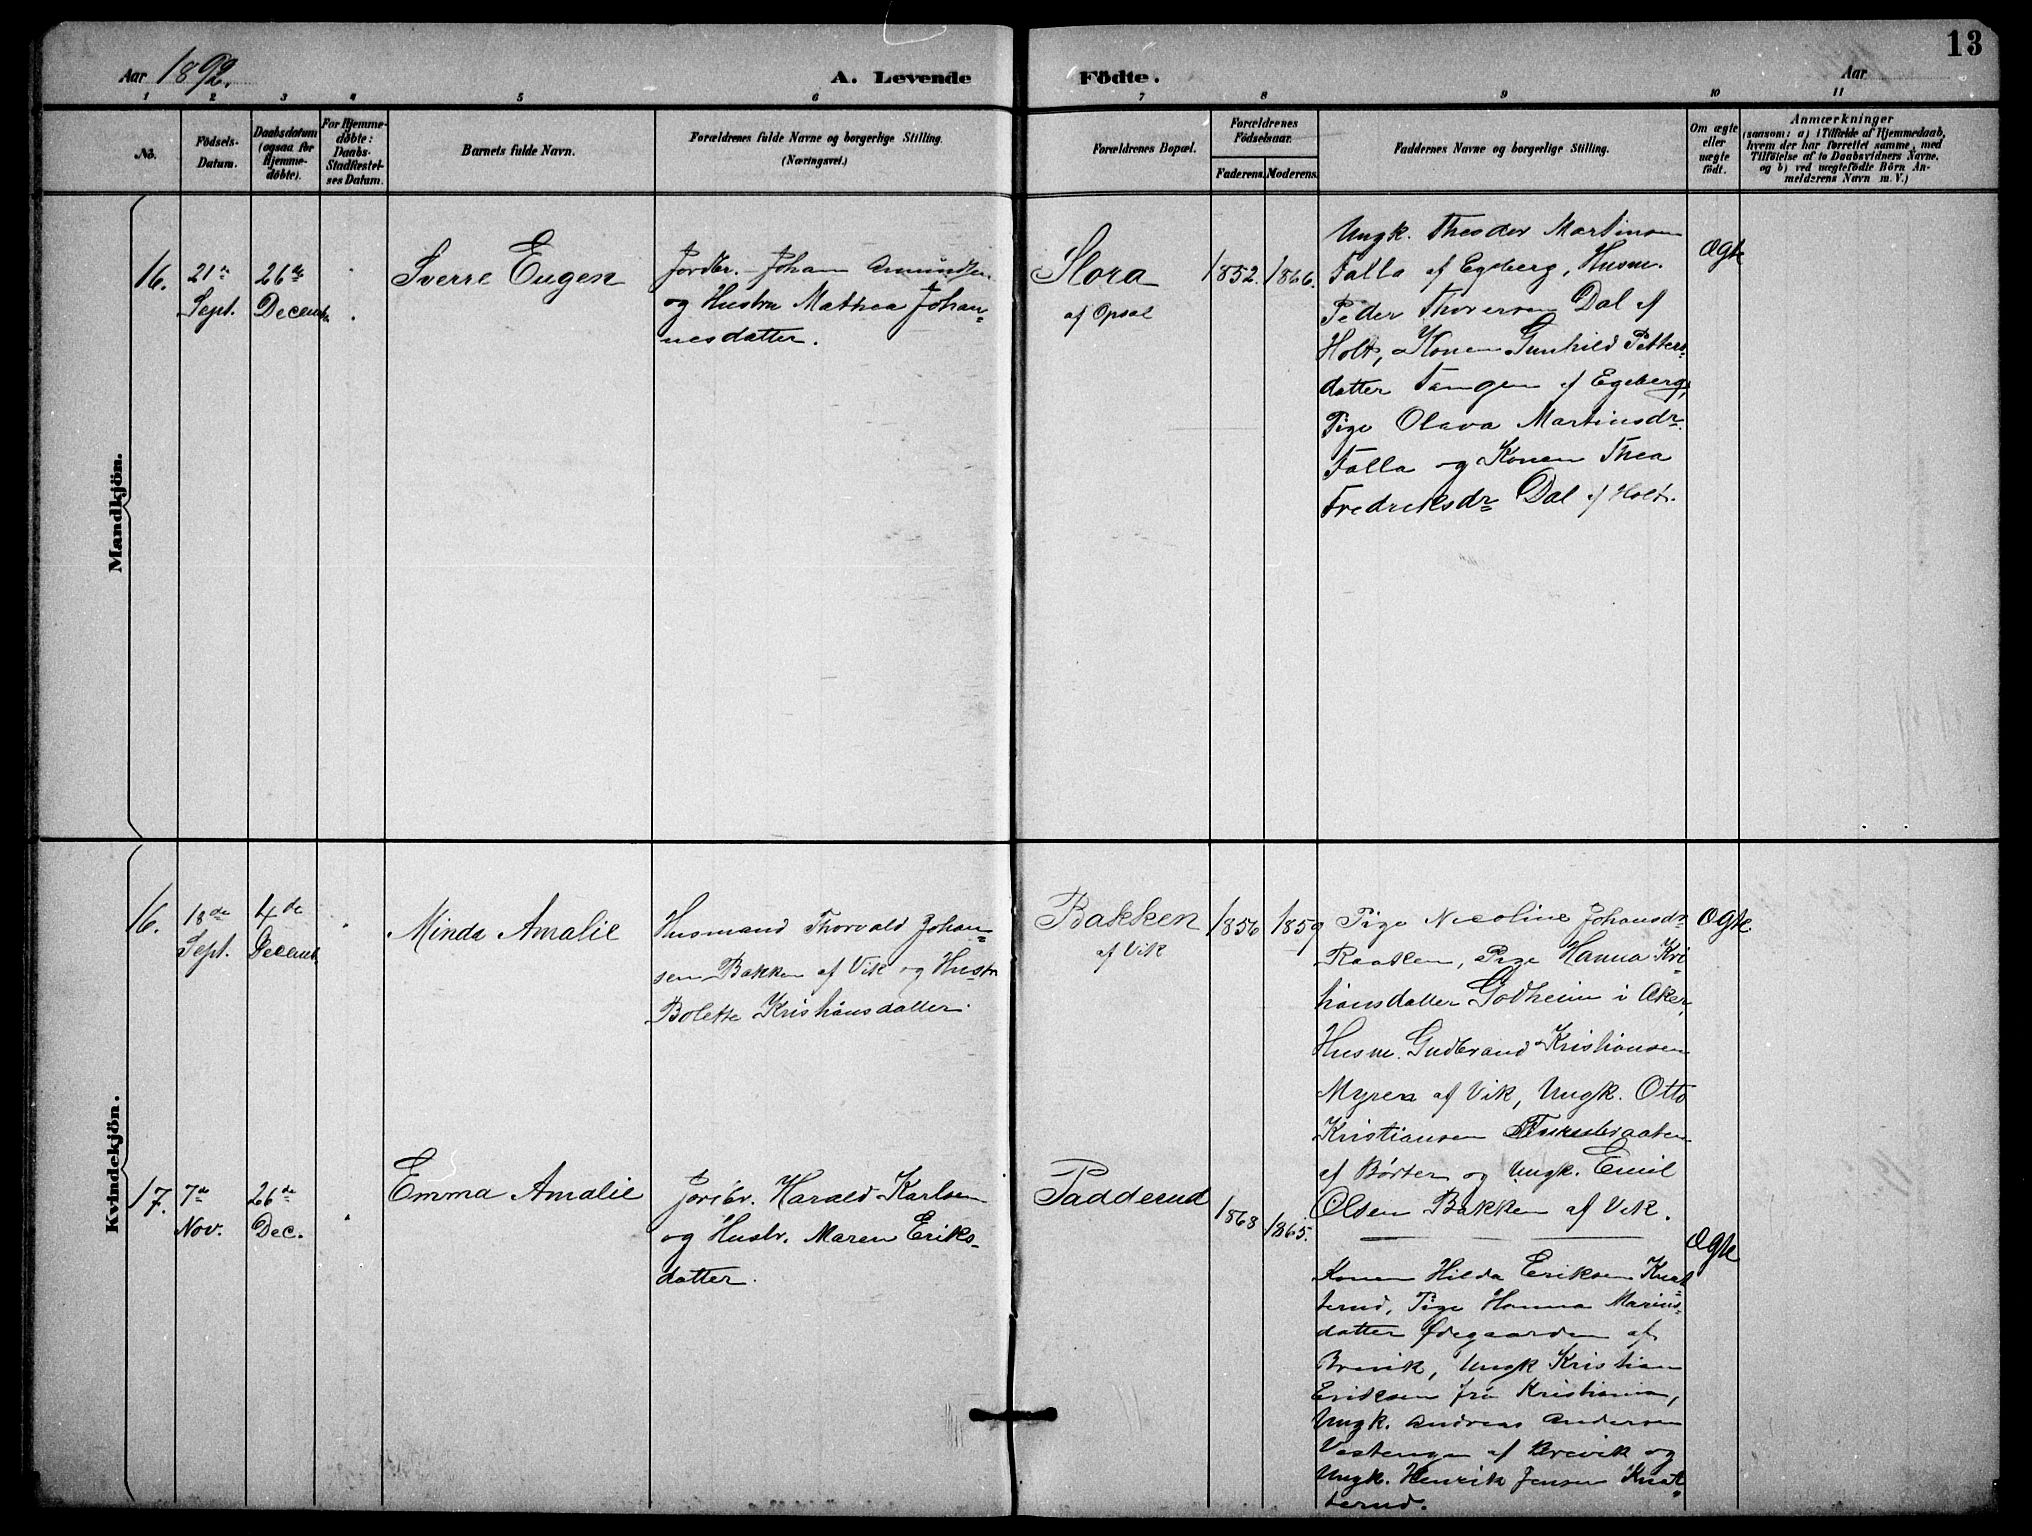 13
Aar 1892.
A. Levende Födte.
Aar
1 2 3 4 5 6 7 8 9 10 11
No.
Födsels-
Datum.
Daabsdatum
(ogsaa for
Hjemme-
döbte).
For Hjemme-
döbte:
Daabs-
Stadfæstel-
ses Datum.
Barnets fulde Navn.
Forældrenes fulde Navne og borgerlige Stilling.
(Næringsvei.)
Forældrenes Bopæl.
Forældrenes
Födselsaar.
Faderens.
Moderens.
Faddernes Navne og borgerlige Stilling.
Om ægte
eller
uægte
födt.
Anmærkninger
(saasom: a) i Tilfælde af Hjemmedaab,
hvem der har forrettet samme, med
Tilföielse af to Daabsvidners Navne,
og b) ved uægtefödte Börn An-
melderens Navn m. V.)
Mandkjön.
16.
21de
Sept.
26de
Decemb.
Sverre Eugen
Jordbr. Johan Amundsen
og Hustru Mathea Johan-
nesdatter.
Slora
af Opsal
1852.
1866.
Ungk. Theodor Martinsen
Falla af Egeberg, Husm.
Peder Thoversen Dal af
Holt, Konen Gunhild Petters-
datter Tangen af Egeberg,
Pige Olava Martinsdr.
Falla og Konen Thea
Fredriksdr Dal af Holt.
Ægte
Kvindekjön.
16.
18de
Sept.
4de
Decemb.
Minda Amalie
Husmand Thorvald Johan-
sen Bakken af Vik og Hustr
Bolette Kristiansdatter.
Bakken
af Vik
1856
1859
Pige Nicoline Johansdr
Raaken, Pige Hanna Kri-
stiansdatter Godheim i Aker,
Husm. Gudbrand Kristiansen
Myren af Vik, Ungk. Otto
Kristiansen
af Börter og Ungk. Emil
Olsen Bakken af Vik.
Ægte
17.
7de
Nov.
26de
Dec.
Emma Amalie
Jordbr. Harald Karlsen
og Hustr. Maren Eriks-
datter.
Padderud
1868
1865.
Konen Hilda Eriksen Knat-
terud, Pige Hanna Marius-
datter Ødegaarden af
Brevik, Ungk Kristian
Eriksen fra Kristiania,
Ungk. Andreas Andersen
Vestengen af Brevik og
Ungk. Henrik Jensen Knat-
terud.
Ægte